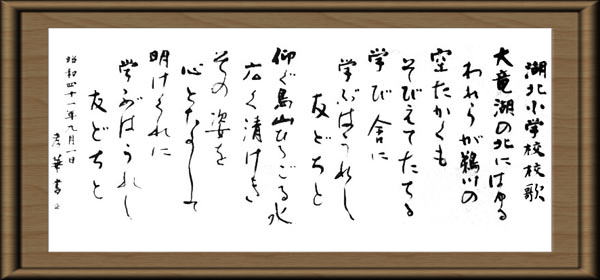 湖北小学校校歌
大竜湖の北にはゆる
われらが鵜川の
空たかくも
そびえてたてる
学び舎に
学ぶはうれし
友どちと
仰ぐ鳥山ひろごる水
広く清けき
その姿を
心となして
明けくれに
学ぶはうれし
友どちと
昭和四十一年九月一日